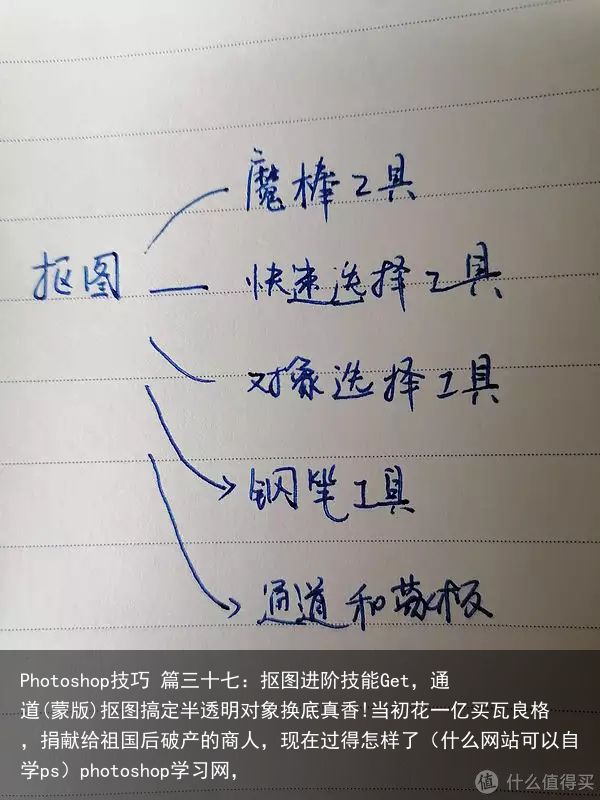 魔棒工具
抠图
快速选择工具
对象选择工具
钢笔工具
通道和蒙板
Photoshop技巧 篇三十七：抠图进阶技能Get，通
道(蒙版)抠图搞定半透明对象换底真香!当初花一亿买瓦良格
，捐献给祖国后破产的商人，现在过得怎样了（什么网站可以自
学ps）photoshop学习网，
值 什么值得买